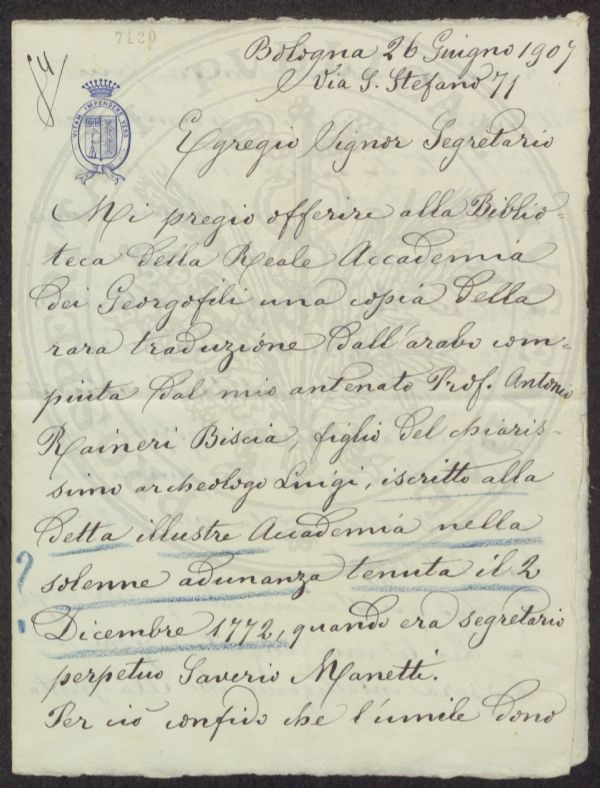 7120
Bologna 26 Giugno 1907
Via S. Stefano 71
VITAM IMPENDERE VERO
Egregio Signor Segretario
Mi pregio offerire alla Biblio-
teca della Reale Accademia
dei Georgofili una copia della
rara traduzione dall'arabo com-
piuta dal mio antenato Prof. Antonio
Raineri Biscia, figlio del chiaris-
simo archeologo Luigi, iscritto alla
detta illustre Accademia nella
solenne adunanza tenuta il 2
Dicembre 1772, quando era segretario
perpetuo Saverio Manetti.
Per ciò confido che l'umile dono
?